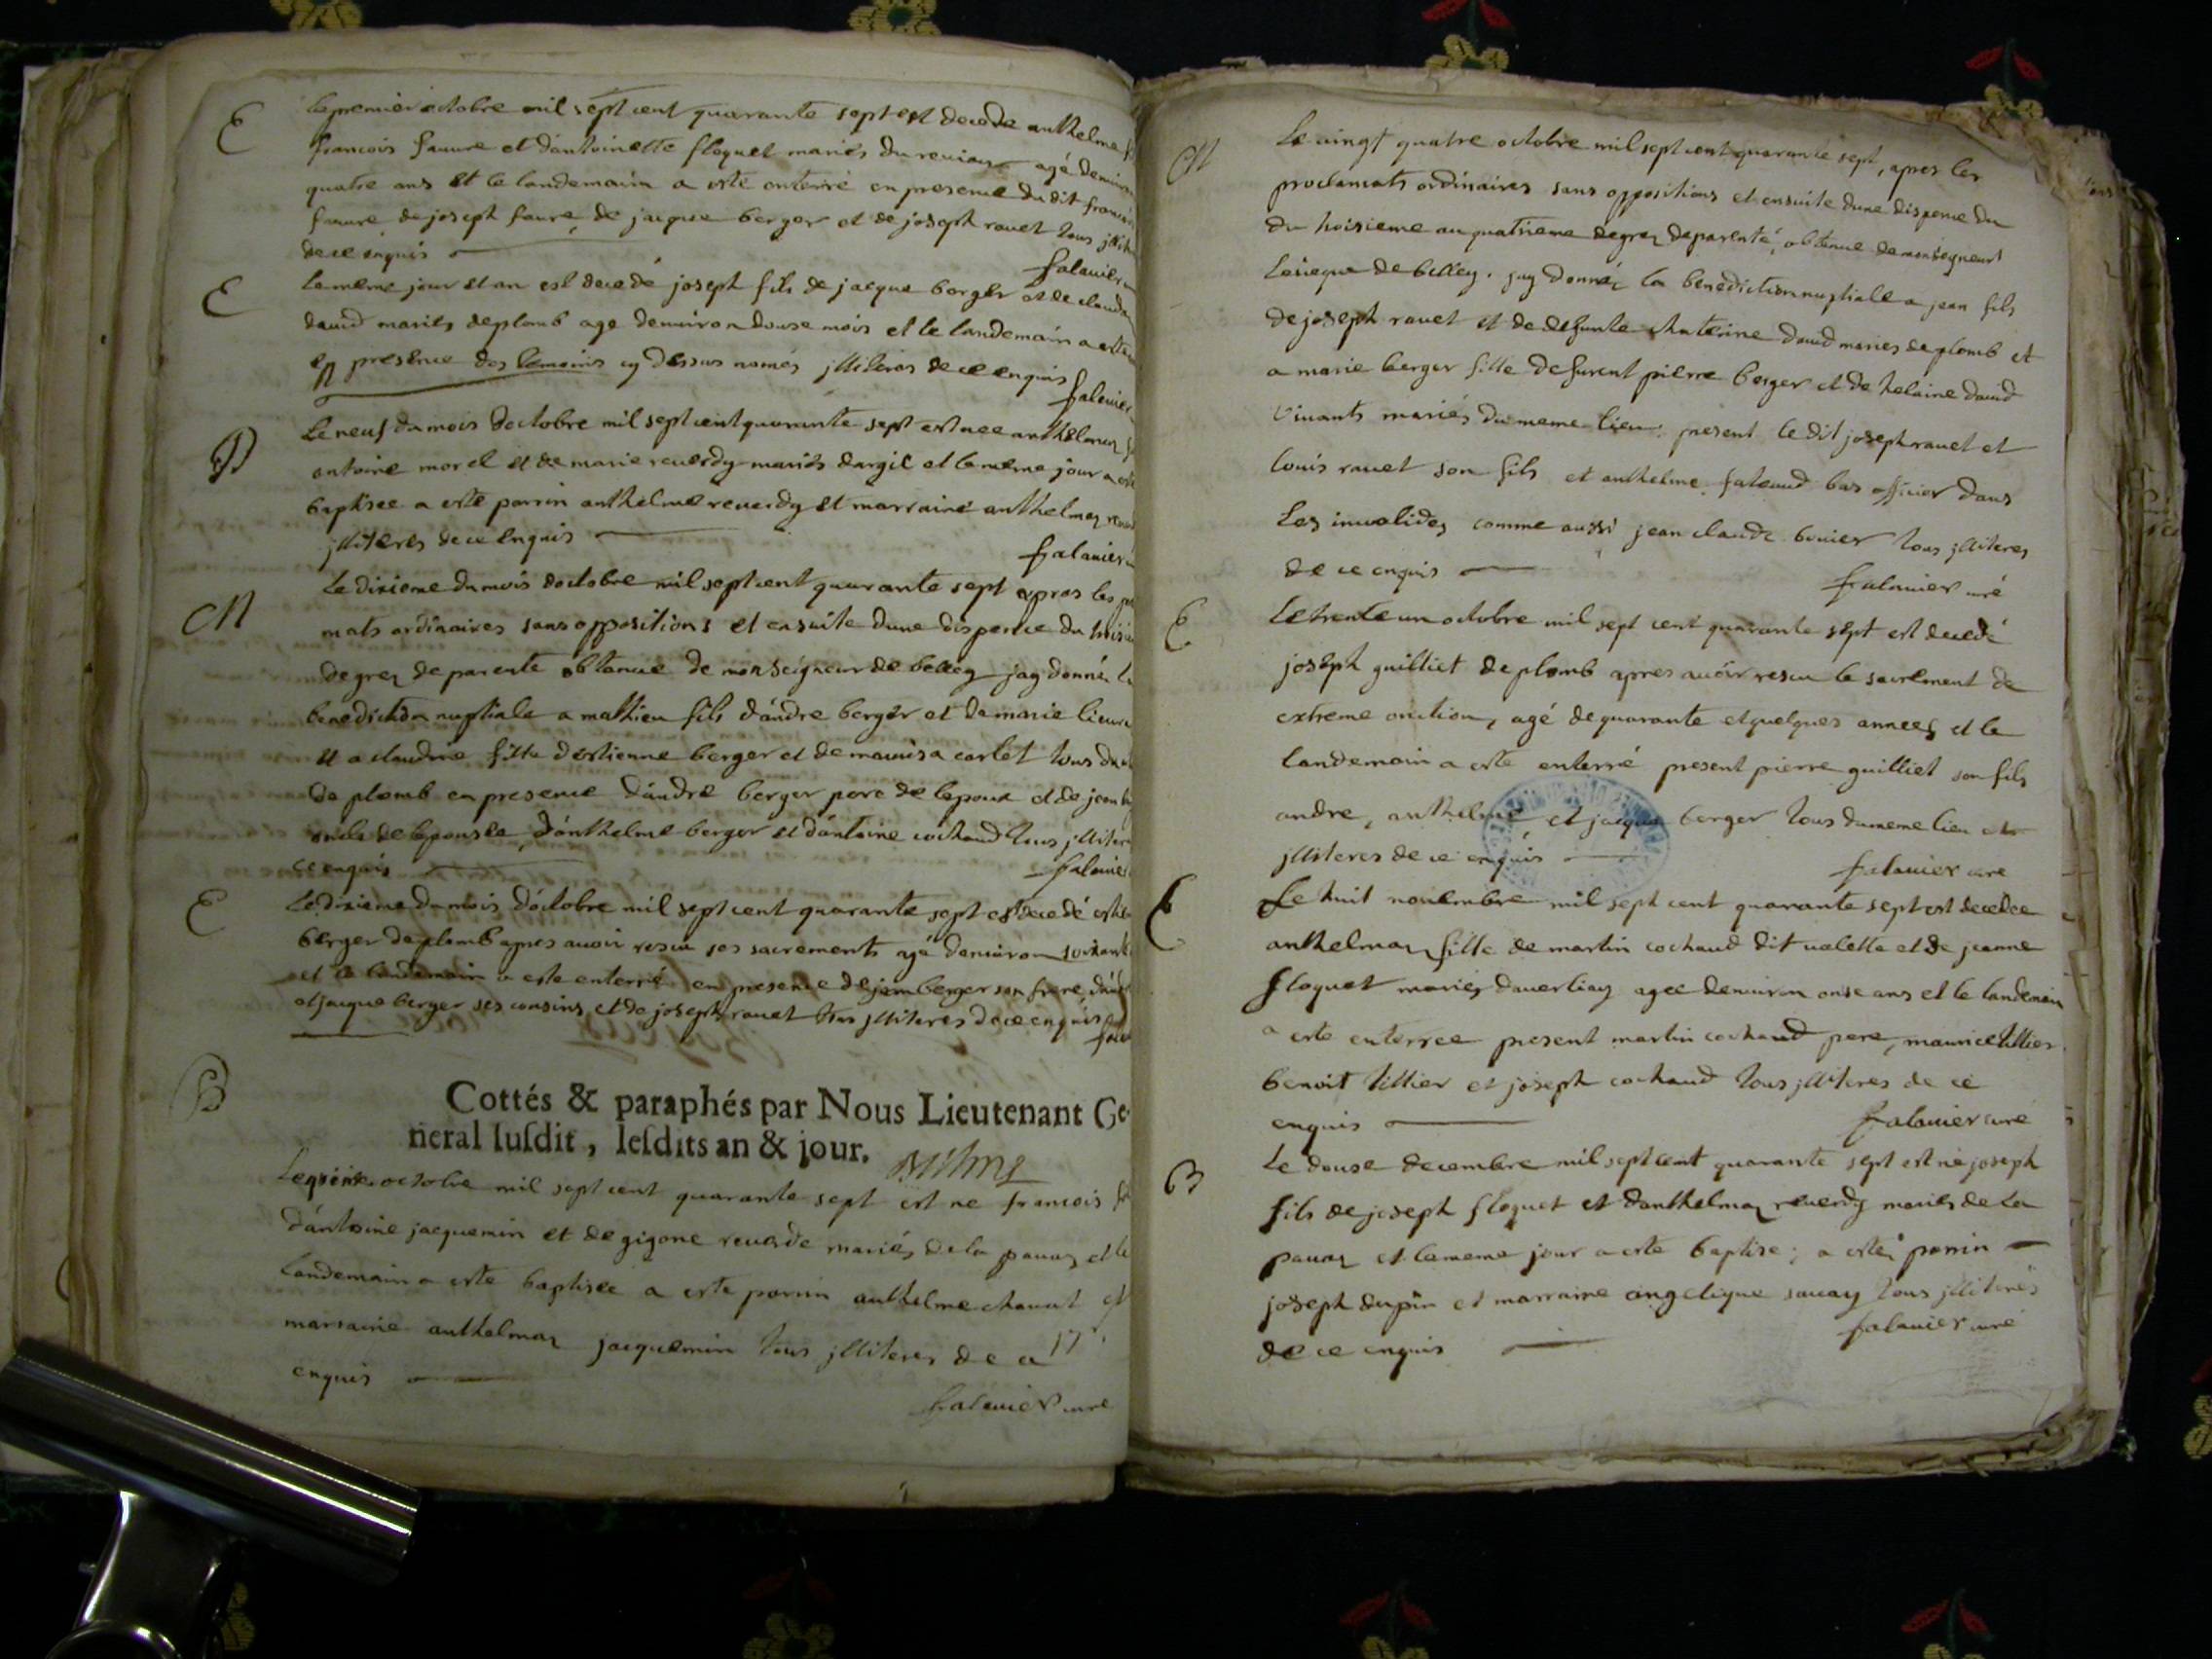 E
Le premier octobre mil sept cent quarante sept est decede anthelme
francois fauure et d'antoinette floquet mariés du agé denuiron
quatre ans et le landemain a esté enterré en presence du dit francois
fauure, de joseph faure, de jacque berger et de joseph rauet tous
de ce enquis falauier
E
Le meme jour et an est decedé joseph fils de jacque berger et de
dauid mariés de plomb age denuiron douse mois et le landemain a
en presence des temoins cy dessus només jlliteres de ce enquis
falauier
B
Le neuf du mois doctobre mil sept cent quarante sept est nee anthelmaz
antoine morel et de marie reuerdy mariés dargil et le meme jour a esté
baptisee a este parrin anthelme reuerdy et marraine anthelmaz
jlliteres de ce enquis
falauier
M
Le dixieme du mois doctobre mil sept cent quarante sept apres les
mats ordinaires sans oppositions et ensuite dune dispense du
degrez de parenté obtenue de monseigneur de belley jay donnéz la
benediction nuptiale a mathieu fils d'andre berger et de marie
et a claudine fille d'estienne berger et de carlet tous du
de plomb en presence d'andré berger pere de lepoux et de jean
oncle de lepouse, d'anthelme berger et d'antoine cochaud tous
ce enquis falauier
E
Le dixieme du mois d'octobre mil sept cent quarante sept est decedé
berger de plomb apres auoir rescu ses sacrements agé denuiron
et le landemain a este enterré en presence de jean berger son frere,
et jacque berger ses cousins et de joseph rauet tous jlliteres de ce enquis
B
Cottés & paraphés par Nous Lieutenant Ge-
neral susdit, lesdits an & jour.
Le octobre mil sept cent quarante sept est ne francois
d'antoine jacquemin et de gigone reuerde mariés de la pauaz et le
landemain a este baptisee a este parrin anthelme chauat et
marraine anthelmaz jacquemin tous jlliteres de ce
enquis
falauier curé
M
Le vingt quatre octobre mil sept cent quarante sept, apres les
proclamats ordinaires sans oppositions et ensuite dune dispense du
du troisieme au quatrieme degrez de parenté, obtenue de monseigneur
Leueque de belley. jay donnéz la benediction nuptiale a jean fils
de joseph rauet et de defunte chaterine dauid mariés de plomb et
a marie berger fille de furent pierre berger et de helaine dauid
vivants mariés du meme lieu. present le dit joseph rauet et
louis rauet son fils et anthelme bas officier dans
Les inualides comme aussi jean claude bouier tous jlliteres
de ce enquis
falauier curé
E
Le trente un octobre mil sept cent quarante sept est decedé
joseph guilliet de plomb apres auoir rescu le sacrement de
extreme onction, agé de quarante et quelques années et le
landemain a esté enterré present pierre guilliet son fils
andre, anthelme et jacque berger tous du meme lieu et
jlliteres de ce enquis
falauier curé
E
Le huit nouembre mil sept cent quarante sept est decedee
anthelmaz fille de martin cochaud dit valette et de jeanne
floquet mariés dauerliaz agee denuiron onse ans et le landemain
a este enterree present martin cochaud pere, maurice tillier
benoit tillier et joseph cochaud tous jlliteres de ce
enquis
falauier curé
B
Le douse decembre mil sept cent quarante sept est né joseph
fils de joseph floquet et danthelmaz reuerdy mariés de la
pauaz et le meme jour a este baptise; a esté parrin
joseph dupin et marraine angelique sauay tous jlliterés
de ce enquis
falauier curé